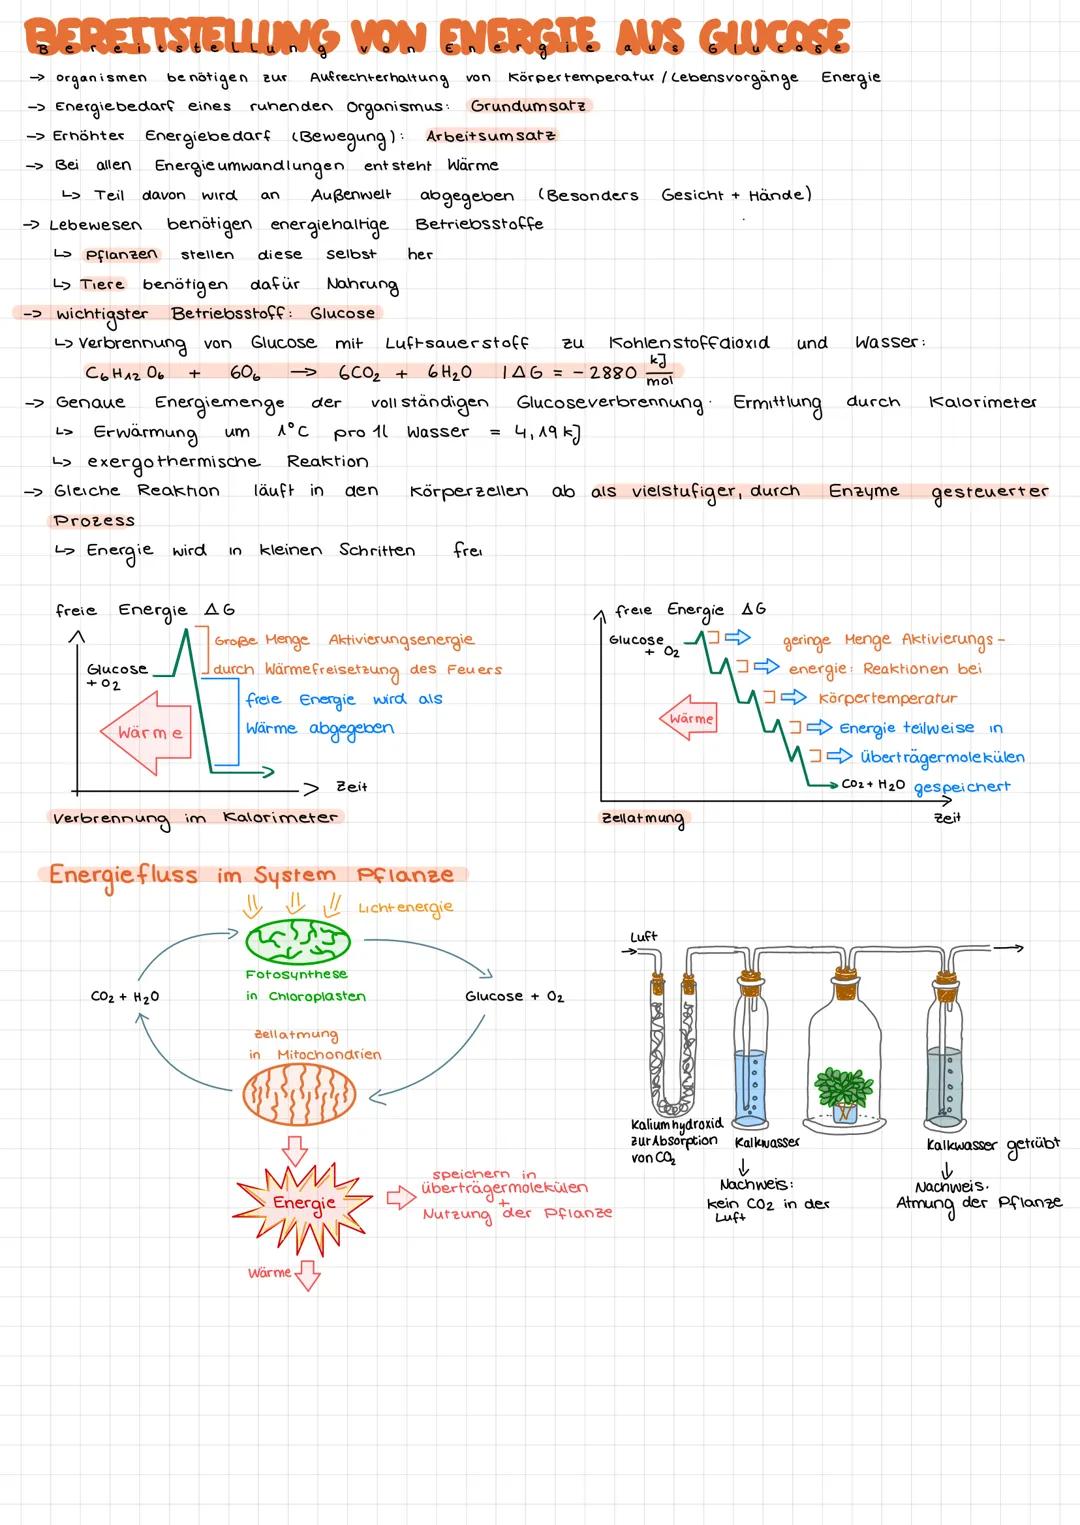 BEREITSTELLUNG VON ENERGIE AUS GLUCOSE
Bereitstellung von Energie aus Glucose
→ organismen benötigen zur Aufrechterhaltung von Körpertemperatur / Lebensvorgänge Energie
→ Energiebedarf eines ruhenden Organismus: Grundumsatz
→ Erhöhter Energiebedarf (Bewegung): Arbeitsumsatz
→ Bei allen Energieumwandlungen entsteht Wärme
↳ Teil davon wird an Außenwelt abgegeben (Besonders Gesicht + Hände)
→ Lebewesen benötigen energiehaltige Betriebsstoffe
↳ Pflanzen stellen diese selbst her
↳ Tiere benötigen dafür Nahrung
→ wichtigster Betriebsstoff: Glucose
↳ Verbrennung von Glucose mit Luftsauerstoff zu Kohlenstoffdioxid und Wasser:
C6H12O6 + 6O6 → 6CO2 + 6H2O | ΔG = -2880 kJ/mol
→ Genaue Energiemenge der vollständigen Glucoseverbrennung. Ermittlung durch Kalorimeter
↳ Erwärmung um 1°C pro 1l Wasser = 4,19 kJ
↳ exergothermische Reaktion
→ Gleiche Reaktion läuft in den Körperzellen ab als vielstufiger, durch Enzyme gesteuerter
Prozess
↳ Energie wird in kleinen Schritten frei
freie Energie ΔG
Glucose
+ O2
Große Menge Aktivierungsenergie
durch Wärmefreisetzung des Feuers
freie Energie wird als
Wärme abgegeben
Wärme
Zeit
Verbrennung im Kalorimeter
freie Energie ΔG
Glucose
+ O2
geringe Menge Aktivierungs-
energie: Reaktionen bei
Körpertemperatur
Wärme
Energie teilweise in
überträgermolekülen
gespeichert
CO2 + H2O
Zeit
Zellatmung
Energiefluss im System Pflanze
Lichtenergie
Fotosynthese
in Chloroplasten
CO2 + H2O
Glucose + O2
Zellatmung
in Mitochondrien
Energie
speichern in
überträgermolekülen
+
Nutzung der Pflanze
Wärme
Luft
Kaliumhydroxid
zur Absorption
von CO2
Kalkwasser
↓
Nachweis:
kein CO2 in der
Luft
Kalkwasser getrübt
↓
Nachweis.
Atmung der Pflanze